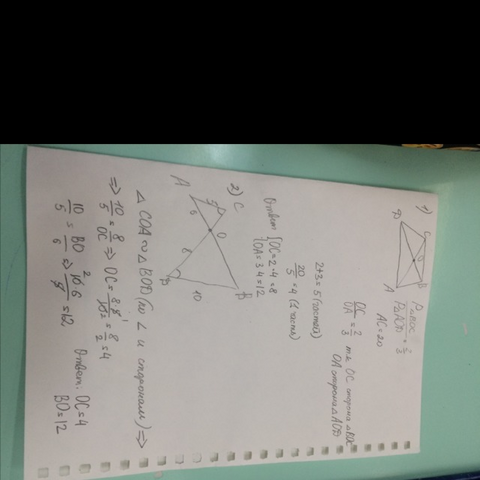 1) C B
O
D A
P△BOC / P△AOD = 2/3
AC = 20
OC/OA = 2/3 т.к. OC сторона △BOC
OA сторона △AOD
2+3=5 (частей)
20/5 = 4 (1 часть)
Ответ: { OC = 2·4 = 8
OA = 3·4 = 12
2) C
A 5 O
6
8
D 10 B
△COA ∾ △BOD (по ∠ и сторонам) ⇒
⇒ 10/5 = 8/OC ⇒ OC = 8·5/10 = 8/2 = 4
10/5 = BO/6 ⇒ 10·6/5 = 12
Ответ: OC = 4
BO = 12